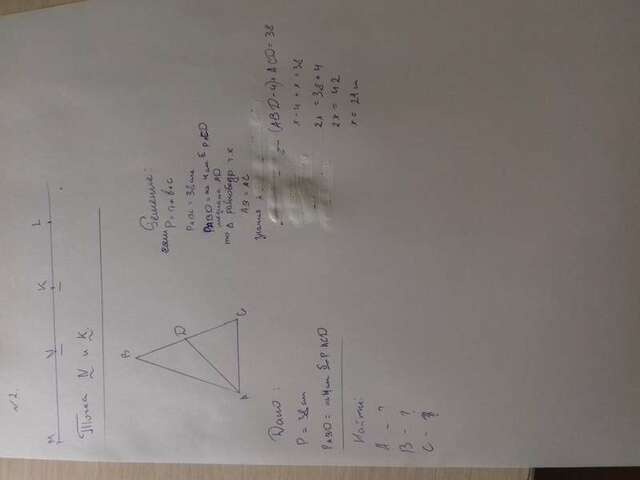 №2.
M N K L
Точка N и K.
B
D
C
A
Дано:
P = 38 см
P ABD = на 4 см Б P ACD
Найти:
A - ?
B - ?
C - ?
Решение:
если P = a+b+c
P ABC = 38 см
P ABD = на 4 см Б P ACD
медиана AD
то Δ равнобедр т.к
AB = AC
значит
(ABD-4)+ACD=38
x-4+x=38
2x = 38+4
2x = 42
x = 21 см